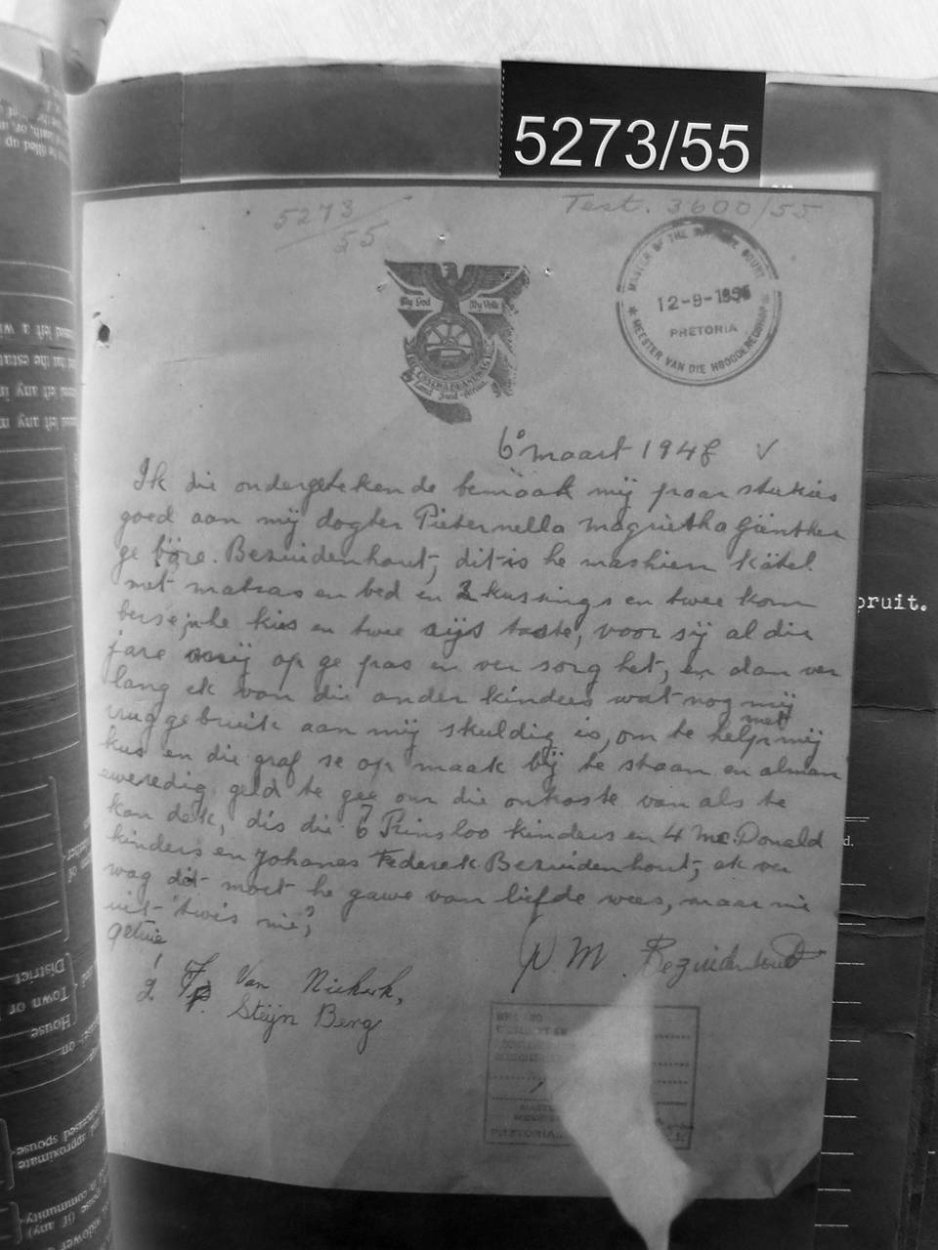 5273/55
5273
55
Test. 3600/55
My God
My Volk
MASTER OF THE SUPREME COURT
12-9-1955
PRETORIA
MEESTER VAN DIE HOOGGEREGSHOF
6° maart 1948 ✓
Ik die ondergetekende bemaak mÿ paar stukies
goed aan mÿ dogter Pieternella Magrietha Günther
ge bore. Bezuidenhout, dit is he mashien kätel
met matras en bed en 2 kussings en twee kom
berse, he kis en twee sÿs, voor sÿ al die
jare mÿ op ge pas en ver sorg het, en dan ver
lang ek van die ander kinders wat nog mÿ
met
trug ge bruik aan mÿ skuldig is, om te help mÿ
kis en die graf se op maak bÿ te staan en almar
eweredig geld te gee om die onkoste van als te
kan dek, dis die 6 Prinsloo kinders en 4 McDonald
kinders en Johanes Federek Bezuidenhout, ek ver
wag dit moet he gawe van liefde wees, maar nie
uit twis nie,
getuie
P. M. Bezuidenhout
1 Van Niekerk,
2. Steijn Berg
pruit.
d.
Town or District
House